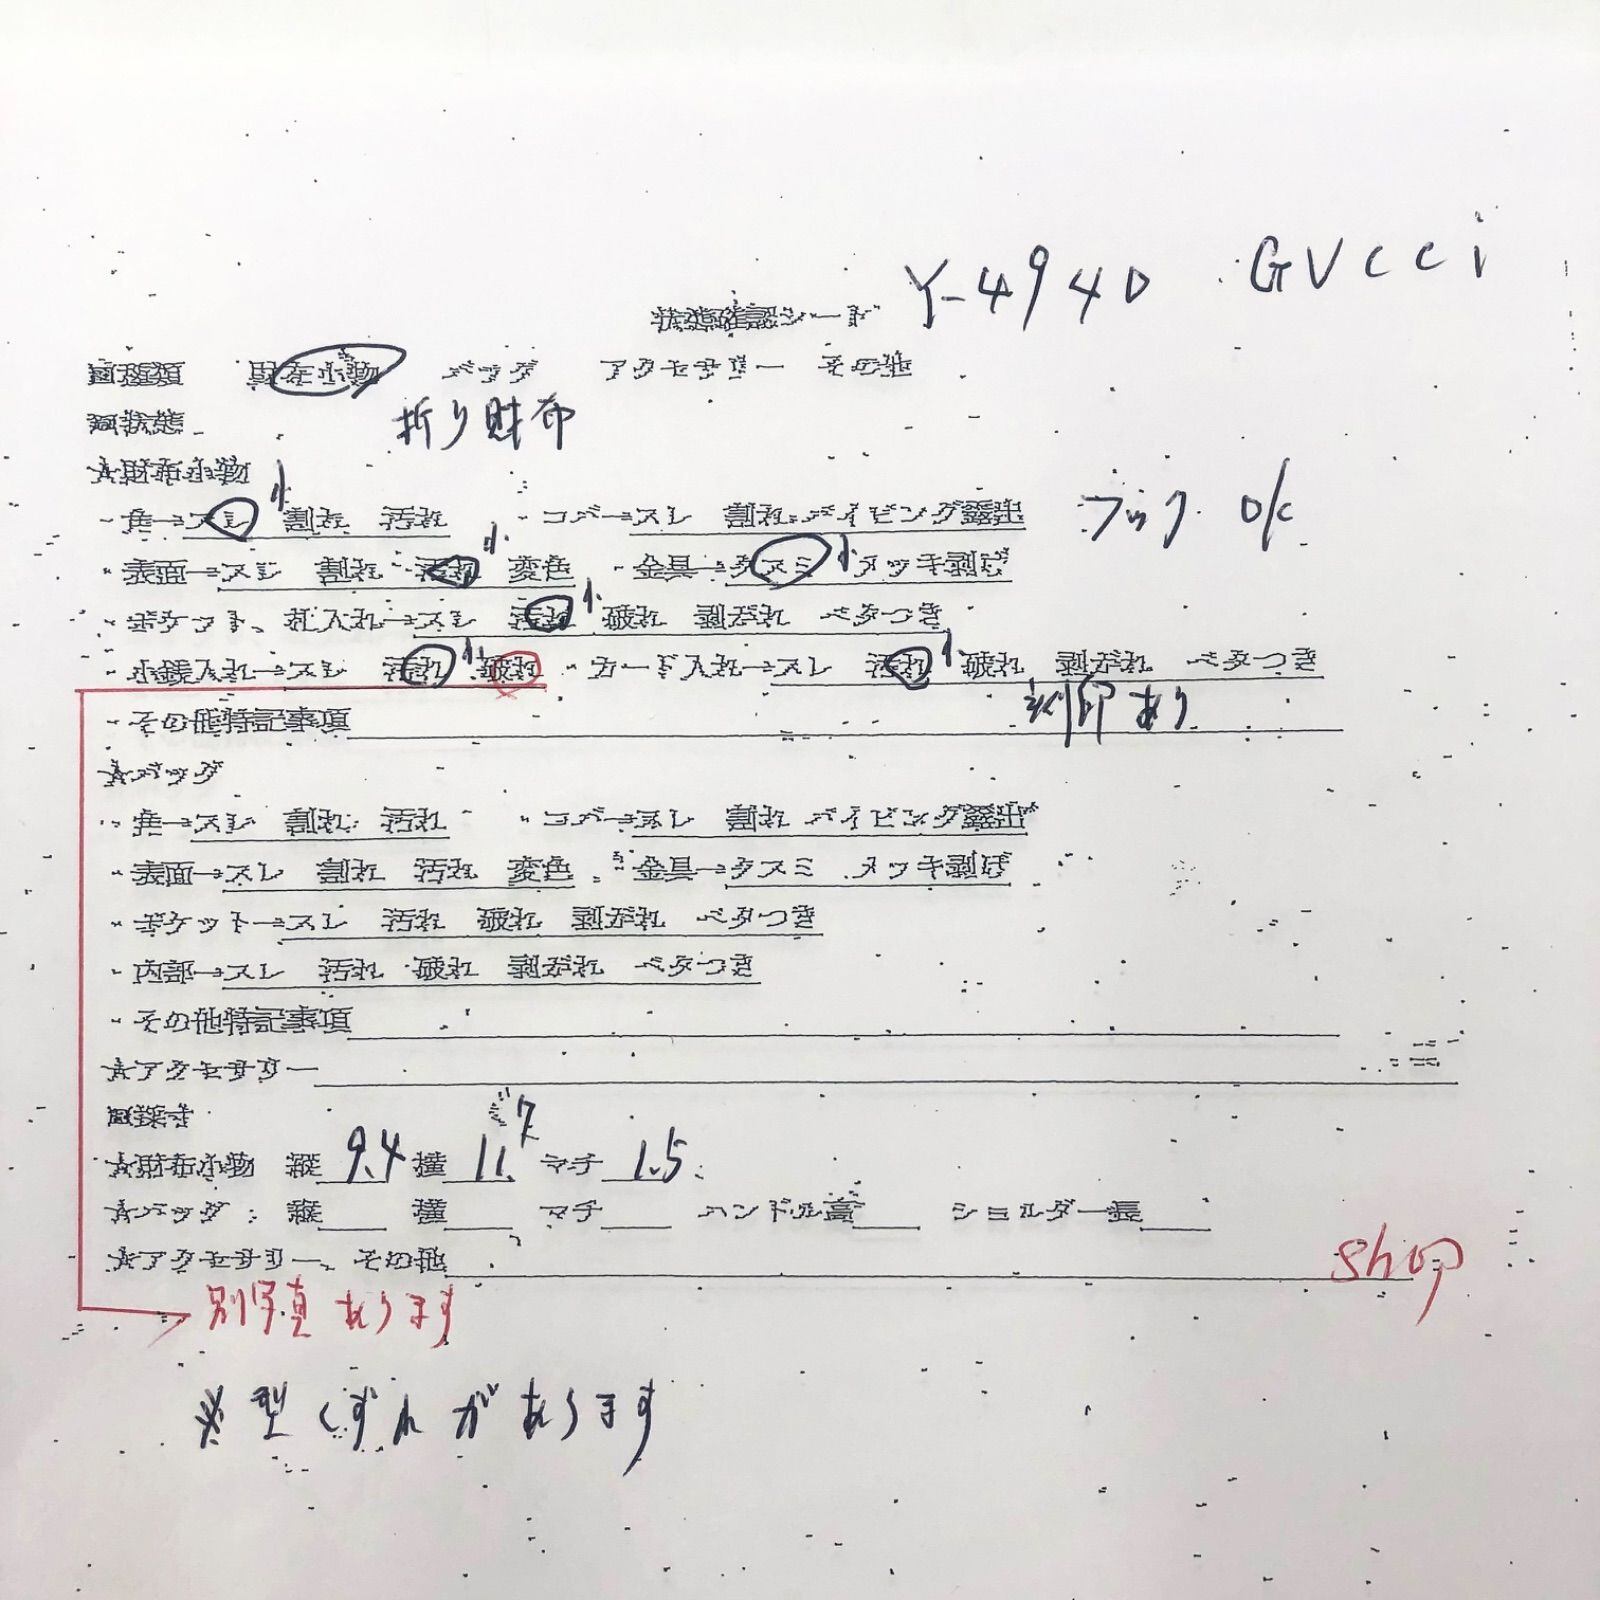 状態確認シート Y-4940 GUCCI
■種類 財布小物 バッグ アクセサリー その他
■状態 折り財布
★財布小物
・角→スレ 小 割れ 汚れ ・コバ→スレ 割れ パイピング露出 フック OK
・表面→スレ 割れ 汚れ 小 変色 ・金具→クスミ 小 メッキ剥げ
・ポケット、札入れ→スレ 汚れ 小 破れ 剥がれ ベタつき
・小銭入れ→スレ 汚れ 小 破れ ・カード入れ→スレ 汚れ 小 破れ 剥がれ ベタつき
・その他特記事項 刻印あり
★バッグ
・角→スレ 割れ 汚れ ・コバ→スレ 割れ パイピング露出
・表面→スレ 割れ 汚れ 変色 ・金具→クスミ メッキ剥げ
・ポケット→スレ 汚れ 破れ 剥がれ ベタつき
・内部→スレ 汚れ 破れ 剥がれ ベタつき
・その他特記事項
★アクセサリー
■採寸
★財布小物 縦 9.4 横 11.7 マチ 1.5
★バッグ 縦 横 マチ ハンドル高 ショルダー長
★アクセサリー、その他 shop
別写真あります
※型くずれがあります